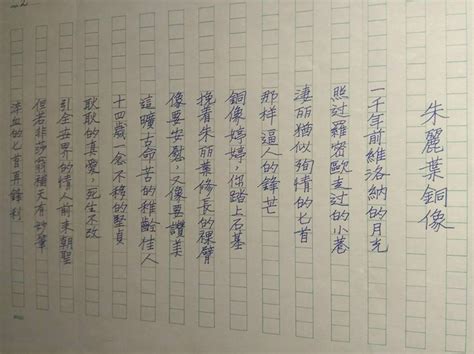 朱麗葉銅像
一千年前維洛納的月光
照过羅密歐走过的小巷
淒丽猶似殉情的匕首
那样逼人的鋒芒
銅像婷婷，你踏上石基
挽着朱丽葉修長的裸臂
像要安慰，又像要讚美
這曠古命苦的稚齡佳人
十四歲一念不移的堅貞
耿耿的真愛，死生不改
引全世界的情人前來朝聖
但若非莎翁補天有妙筆
流血的匕首再鋒利